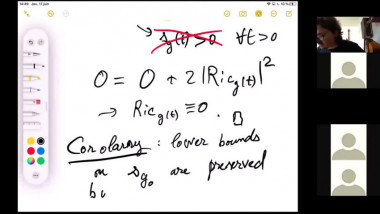 14:49 Jeu. 17 juin
→ s_g(t) > 0 ∀t>0
0 = 0 + 2|Ric_g(t)|²
→ Ric_g(t) ≡ 0. □
Corolary: lower bounds
on s_g₀ are preserved